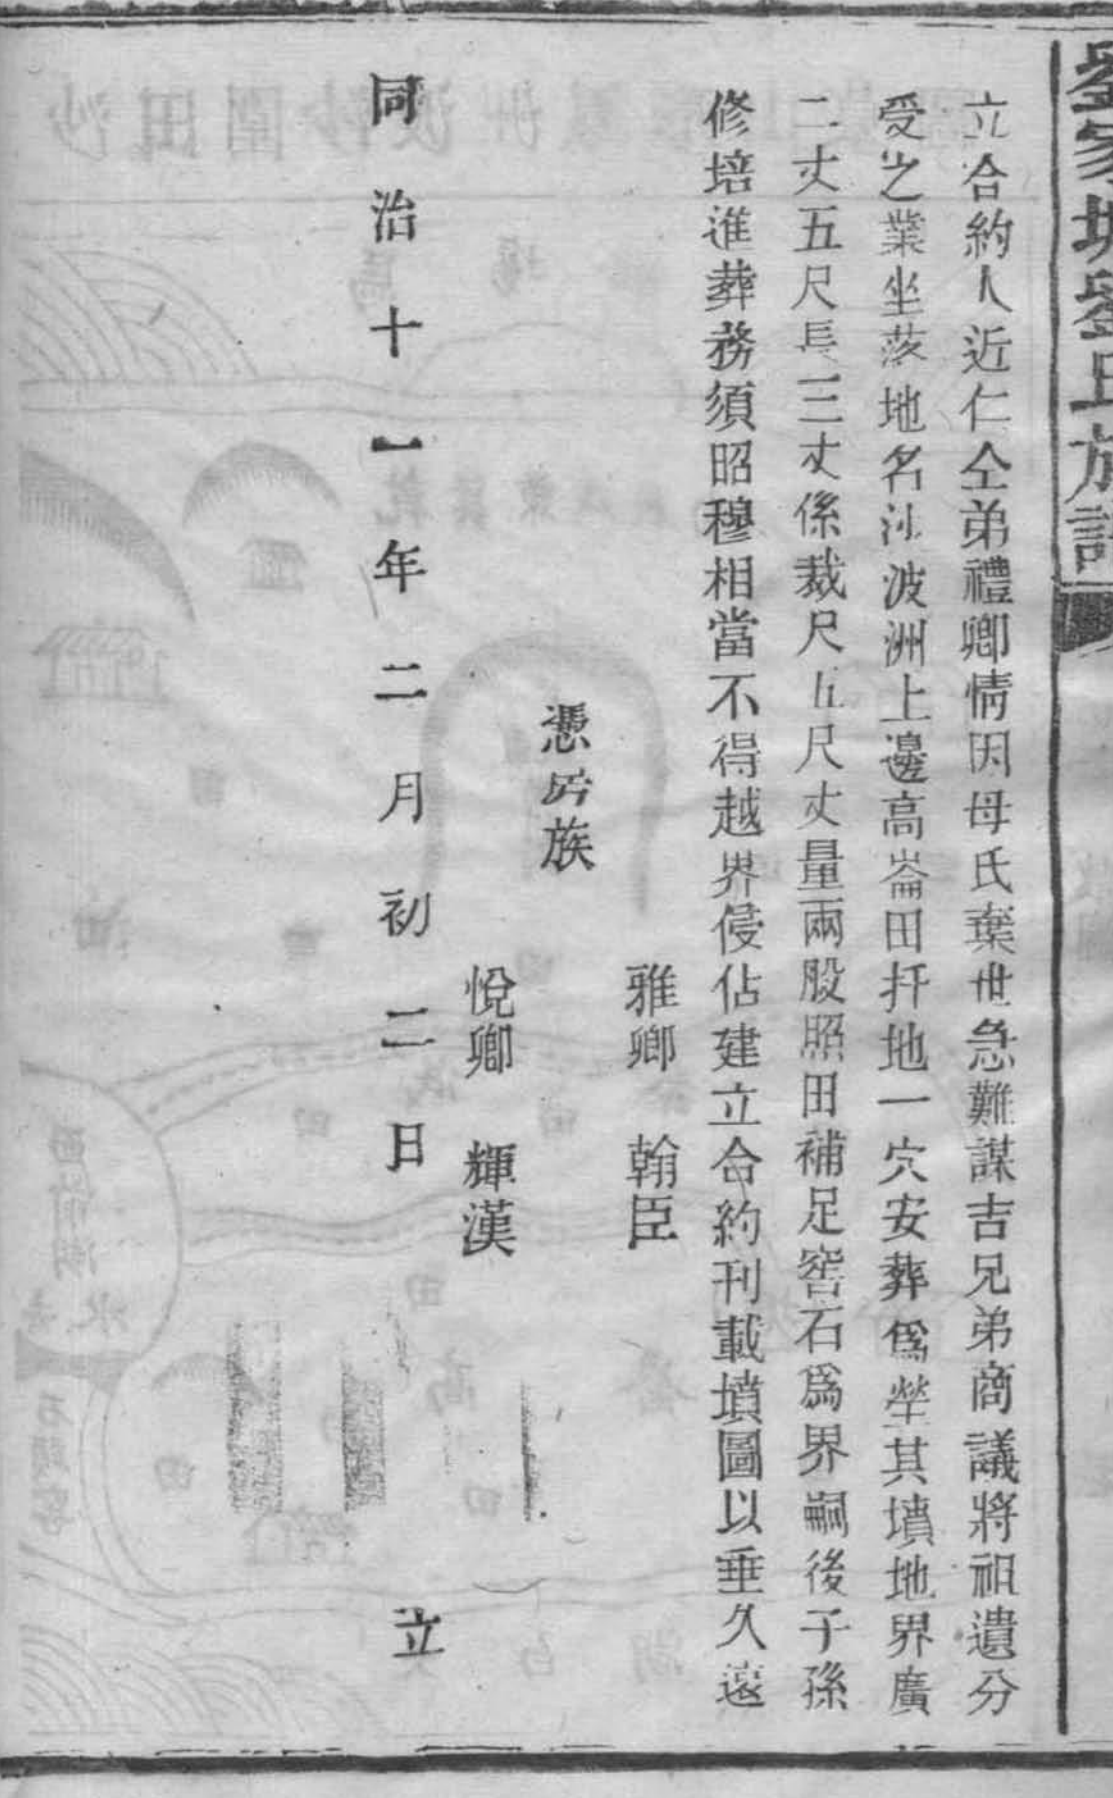 劉家塘劉氏族譜
立合約人近仁仝弟禮卿情因母氏棄世急難謀吉兄弟商議將祖遺分
受之業坐落地名沙波洲上邊高崙田扦地一穴安葬爲塋其墳地界廣
二丈五尺長三丈係裁尺五尺丈量兩股照田補足窖石爲界嗣後子孫
修培進葬務須昭穆相當不得越界侵佔建立合約刊載墳圖以垂久遠
雅卿 翰臣
憑房族
悅卿 輝漢
同治十一年二月初二日 立